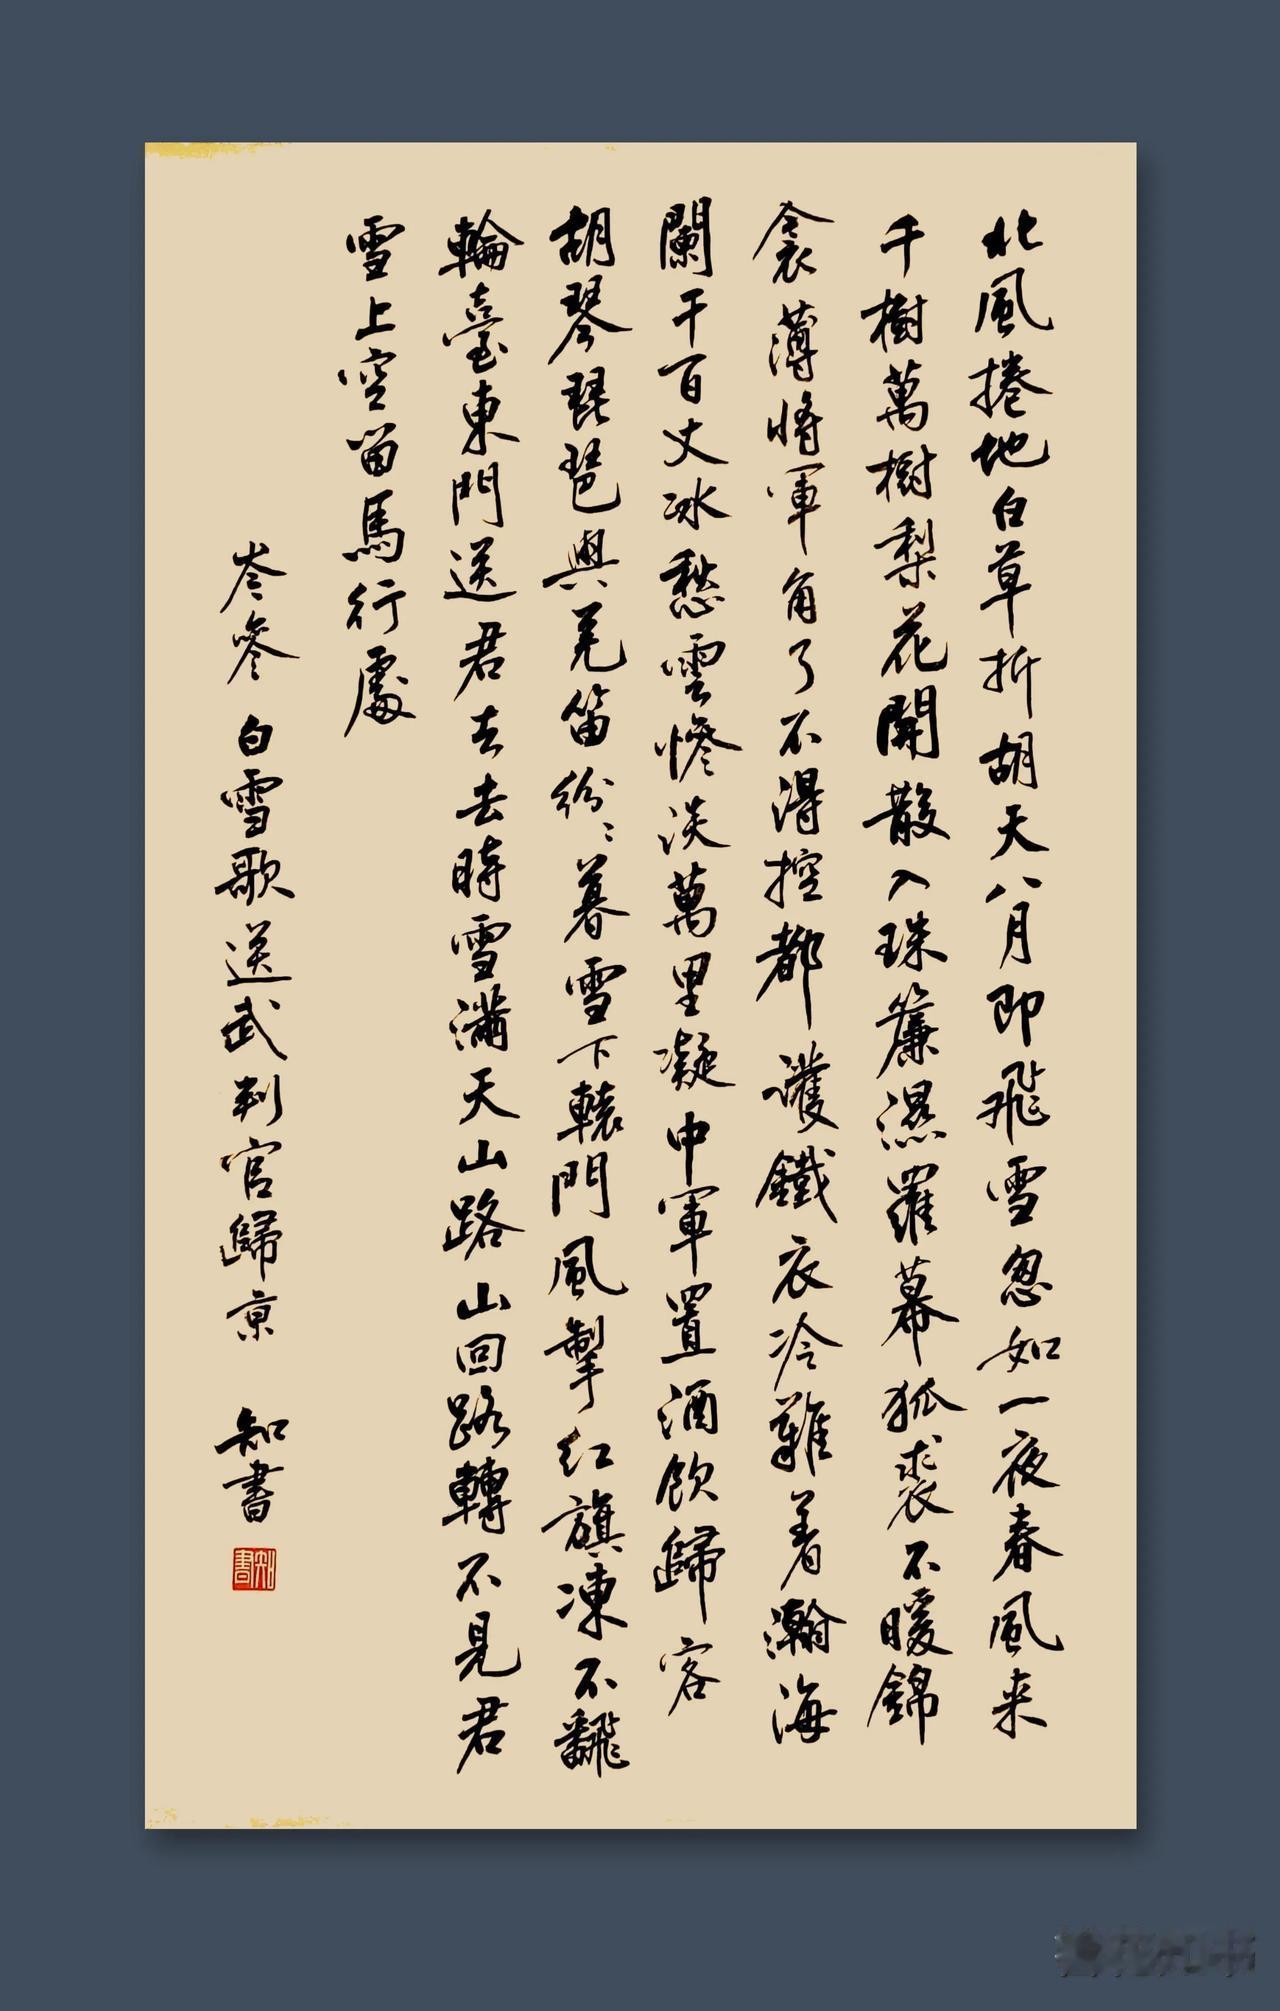 北風捲地白草折胡天八月即飛雪忽如一夜春風来
千樹萬樹梨花開散入珠簾濕羅幕狐裘不暖錦
衾薄将軍角弓不得控都護鐵衣冷難着瀚海
闌干百丈冰愁雲惨淡萬里凝中軍置酒飲歸客
胡琴琵琶與羌笛紛〻暮雪下轅門風掣红旗凍不飜
輪臺東門送君去去時雪满天山路山回路轉不見君
雪上空留馬行處
岑參 白雪歌送武判官歸京 知書
知書